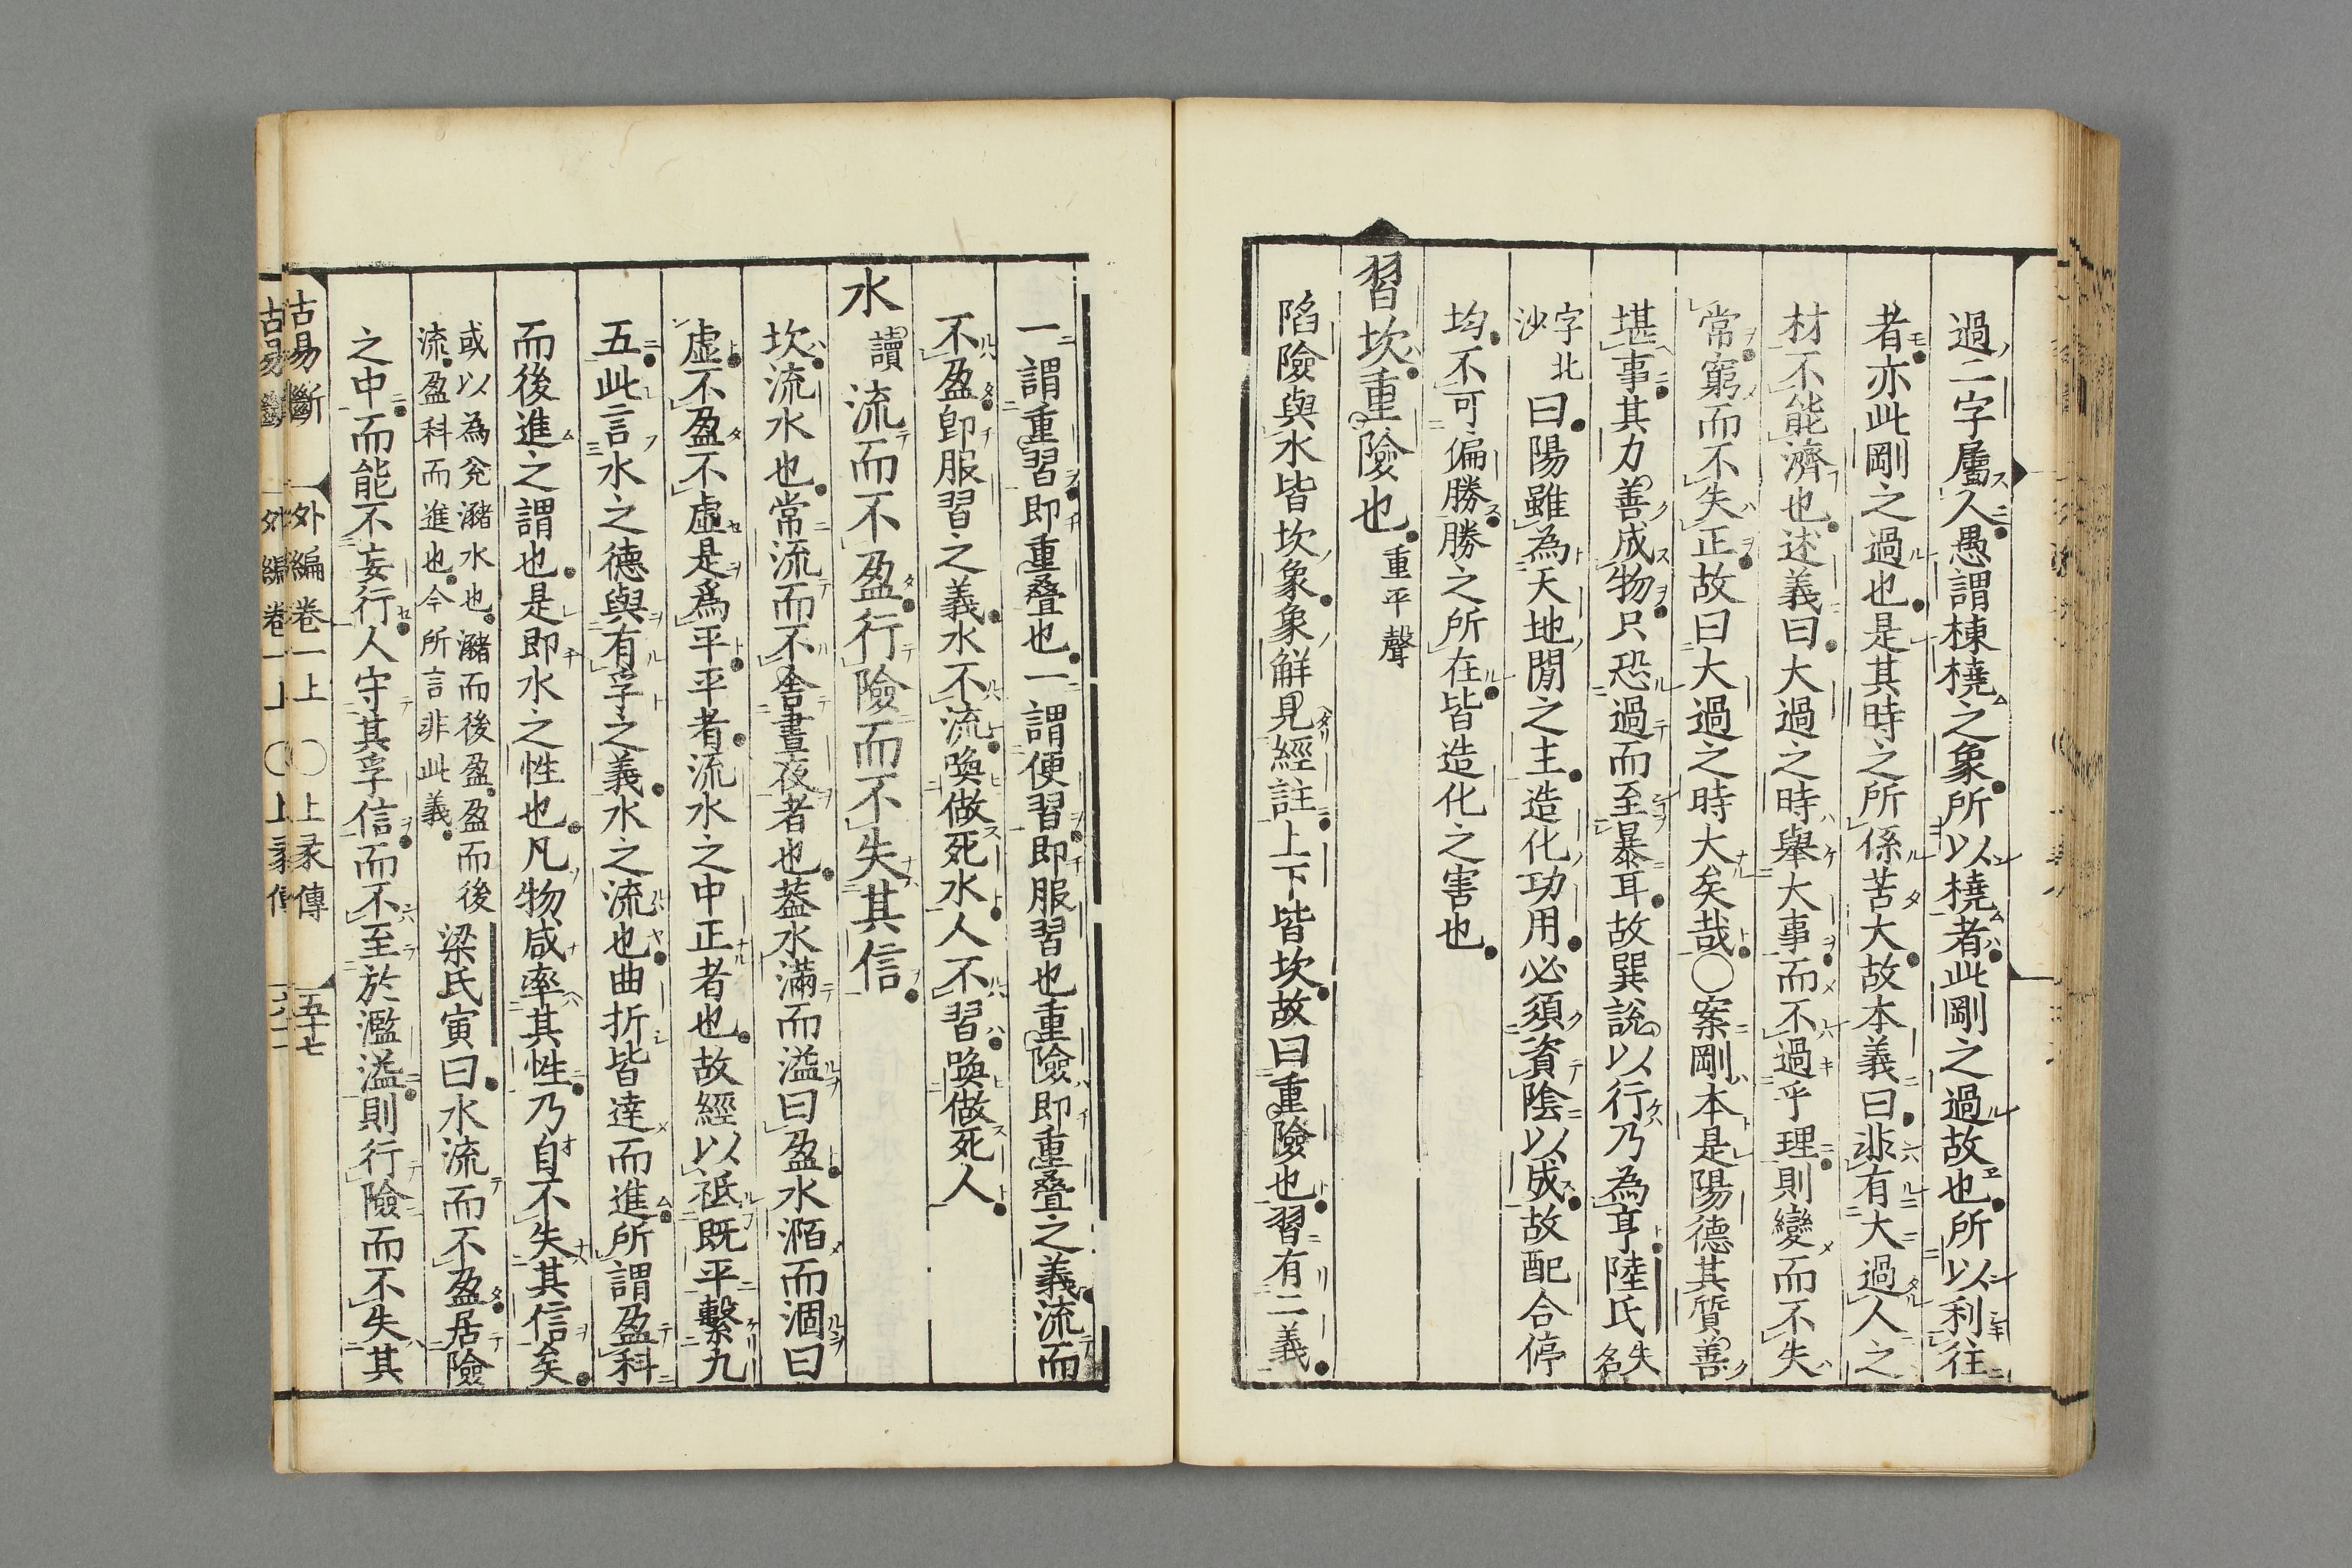 過二字屬人愚謂棟橈之象所以橈者此剛之過故也所以利往
者亦此剛之過也是其時之所係苦大故本義曰非有大過人之
材不能濟也述義曰大過之時舉大事而不過乎理則變而不失
常窮而不失正故曰大過之時大矣哉〇案剛本是陽德其質善
堪事其力善成物只恐過而至暴耳故巽說以行乃為亨陸氏失名
字北沙曰陽雖為天地閒之主造化功用必須資陰以成故配合停
均不可偏勝勝之所在皆造化之害也
習坎重險也重平聲
陷險與水皆坎象象解見經註上下皆坎故曰重險也習有二義
一謂重習即重疊也一謂便習即服習也重險即重疊之義流而
不盈卽服習之義水不流喚做死水人不習喚做死人
水讀流而不盈行險而不失其信
坎流水也常流而不舍晝夜者也葢水滿而溢曰盈水洦而涸曰
虛不盈不虛是爲平平者流水之中正者也故經以祗既平繫九
五此言水之德與有孚之義水之流也曲折皆達而進所謂盈科
而後進之謂也是即水之性也凡物咸率其性乃自不失其信矣
或以為兊瀦水也瀦而後盈盈而後
流盈科而進也今所言非此義
梁氏寅曰水流而不盈居險
之中而能不妄行人守其孚信而不至於濫溢則行險而不失其
古易斷 外編卷一上 〇上彖傳 五十七
古易斷 外編卷一上 〇上彖傳